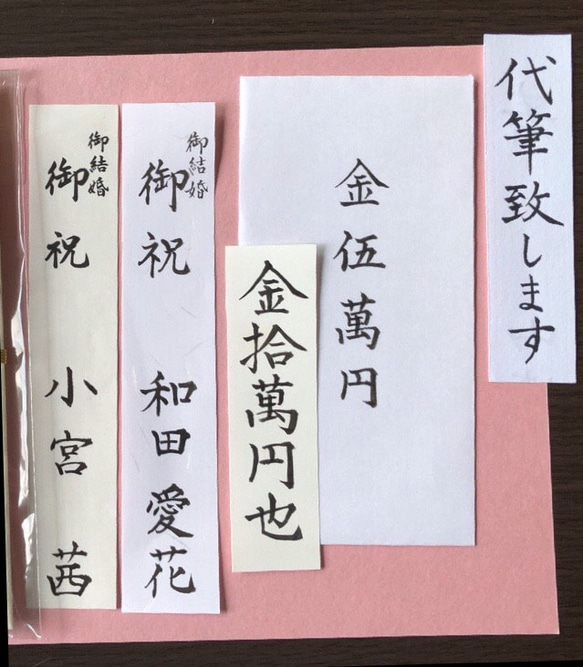 代筆致します
金伍萬円
金拾萬円也
御結婚
御祝 和田愛花
御結婚
御祝 小宮 茜